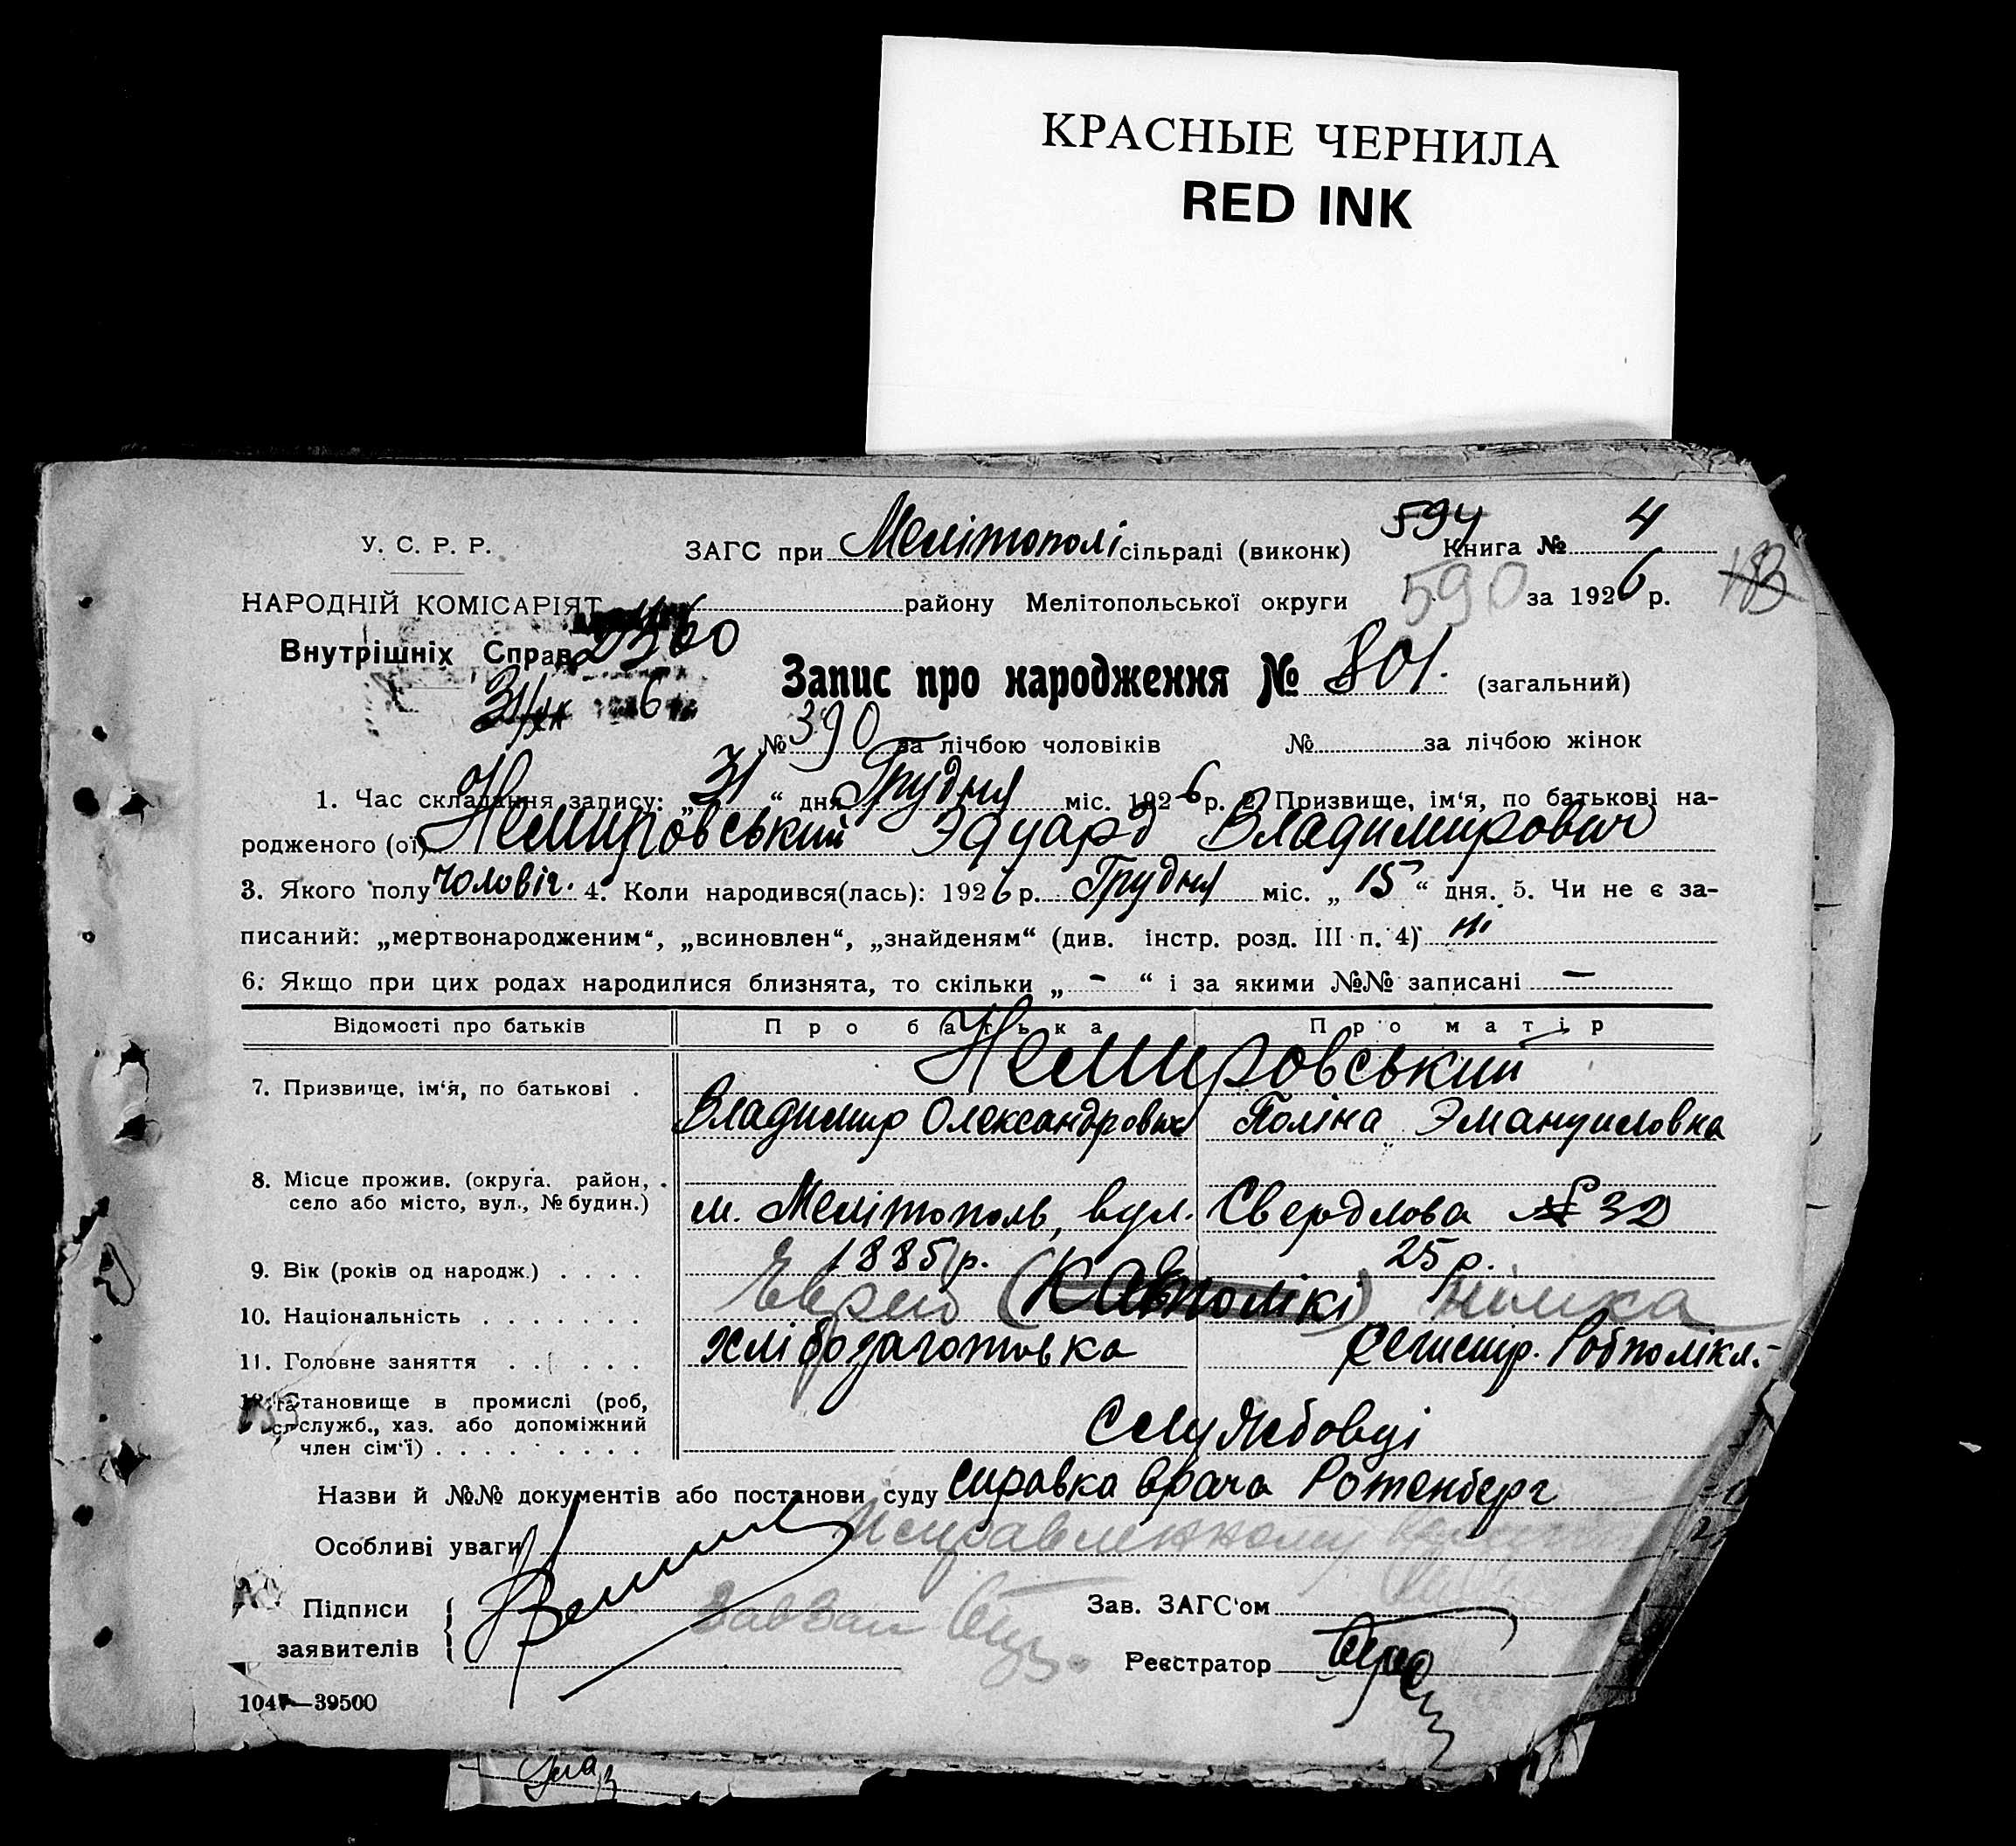 КРАСНЫЕ ЧЕРНИЛА
RED INK
594
У. С. Р. Р. ЗАГС при Мелітополі сільраді (виконк) Книга № 4
НАРОДНІЙ КОМІСАРІЯТ району Мелітопольської округи 590 за 1926 р.
Внутрішніх Справ 2360
Запис про народження № 801. (загальний)
31/XII 6
№ 390 за лічбою чоловіків № за лічбою жінок
1. Час складання запису: „31“ дня Грудня міс. 1926 р. 2. Призвище, ім‘я, по батькові на-
родженого (ої) Немировський Эдуард Владимирович
3. Якого полу чоловіч. 4. Коли народився(лась): 1926 р. Грудня міс. „15“ дня. 5. Чи не є за-
писаний: „мертвонародженим“, „всиновлен“, „знайденям“ (див. інстр. розд. III п. 4) ні
6. Якщо при цих родах народилися близнята, то скільки „ - “ і за якими №№ записані —
Відомості про батьків Про батька Про матір
Немировський
7. Призвище, ім‘я, по батькові .
Владимир Олександрович Поліна Эмануиловна
8. Місце прожив. (округа, район,
село або місто, вул., № будин.) м. Мелітополь, вул. Свердлова № 32
9. Вік (років од народж.) . . . . 1885 р. 25 р.
10. Національність . . . . . . . Еврей (Католікі) німка
11. Головне заняття . . . . . . хлібозаготовка регистр. Робполікл.
12. Становище в промислі (роб,
служб., хаз. або допоміжний
член сім‘ї) . . . . . . . . . Служебовці
Назви й №№ документів або постанови суду справка врача Ротенберг
Особливі уваги Исправленному
Підписи
заявителів
Зав. ЗАГС‘ом
Реєстратор
1047—39500